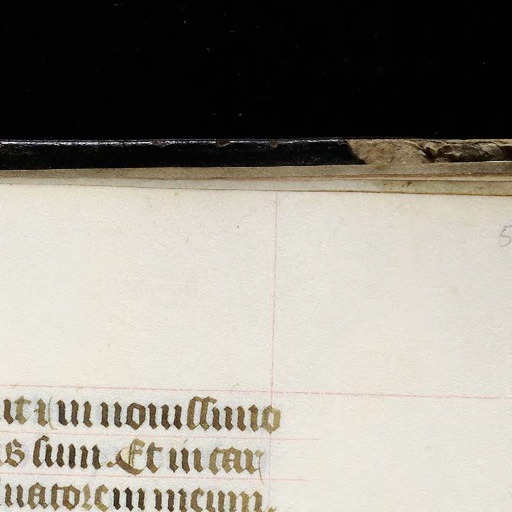 it ⁊ in nouissimo
s sum. Et in car
uatorem meum.